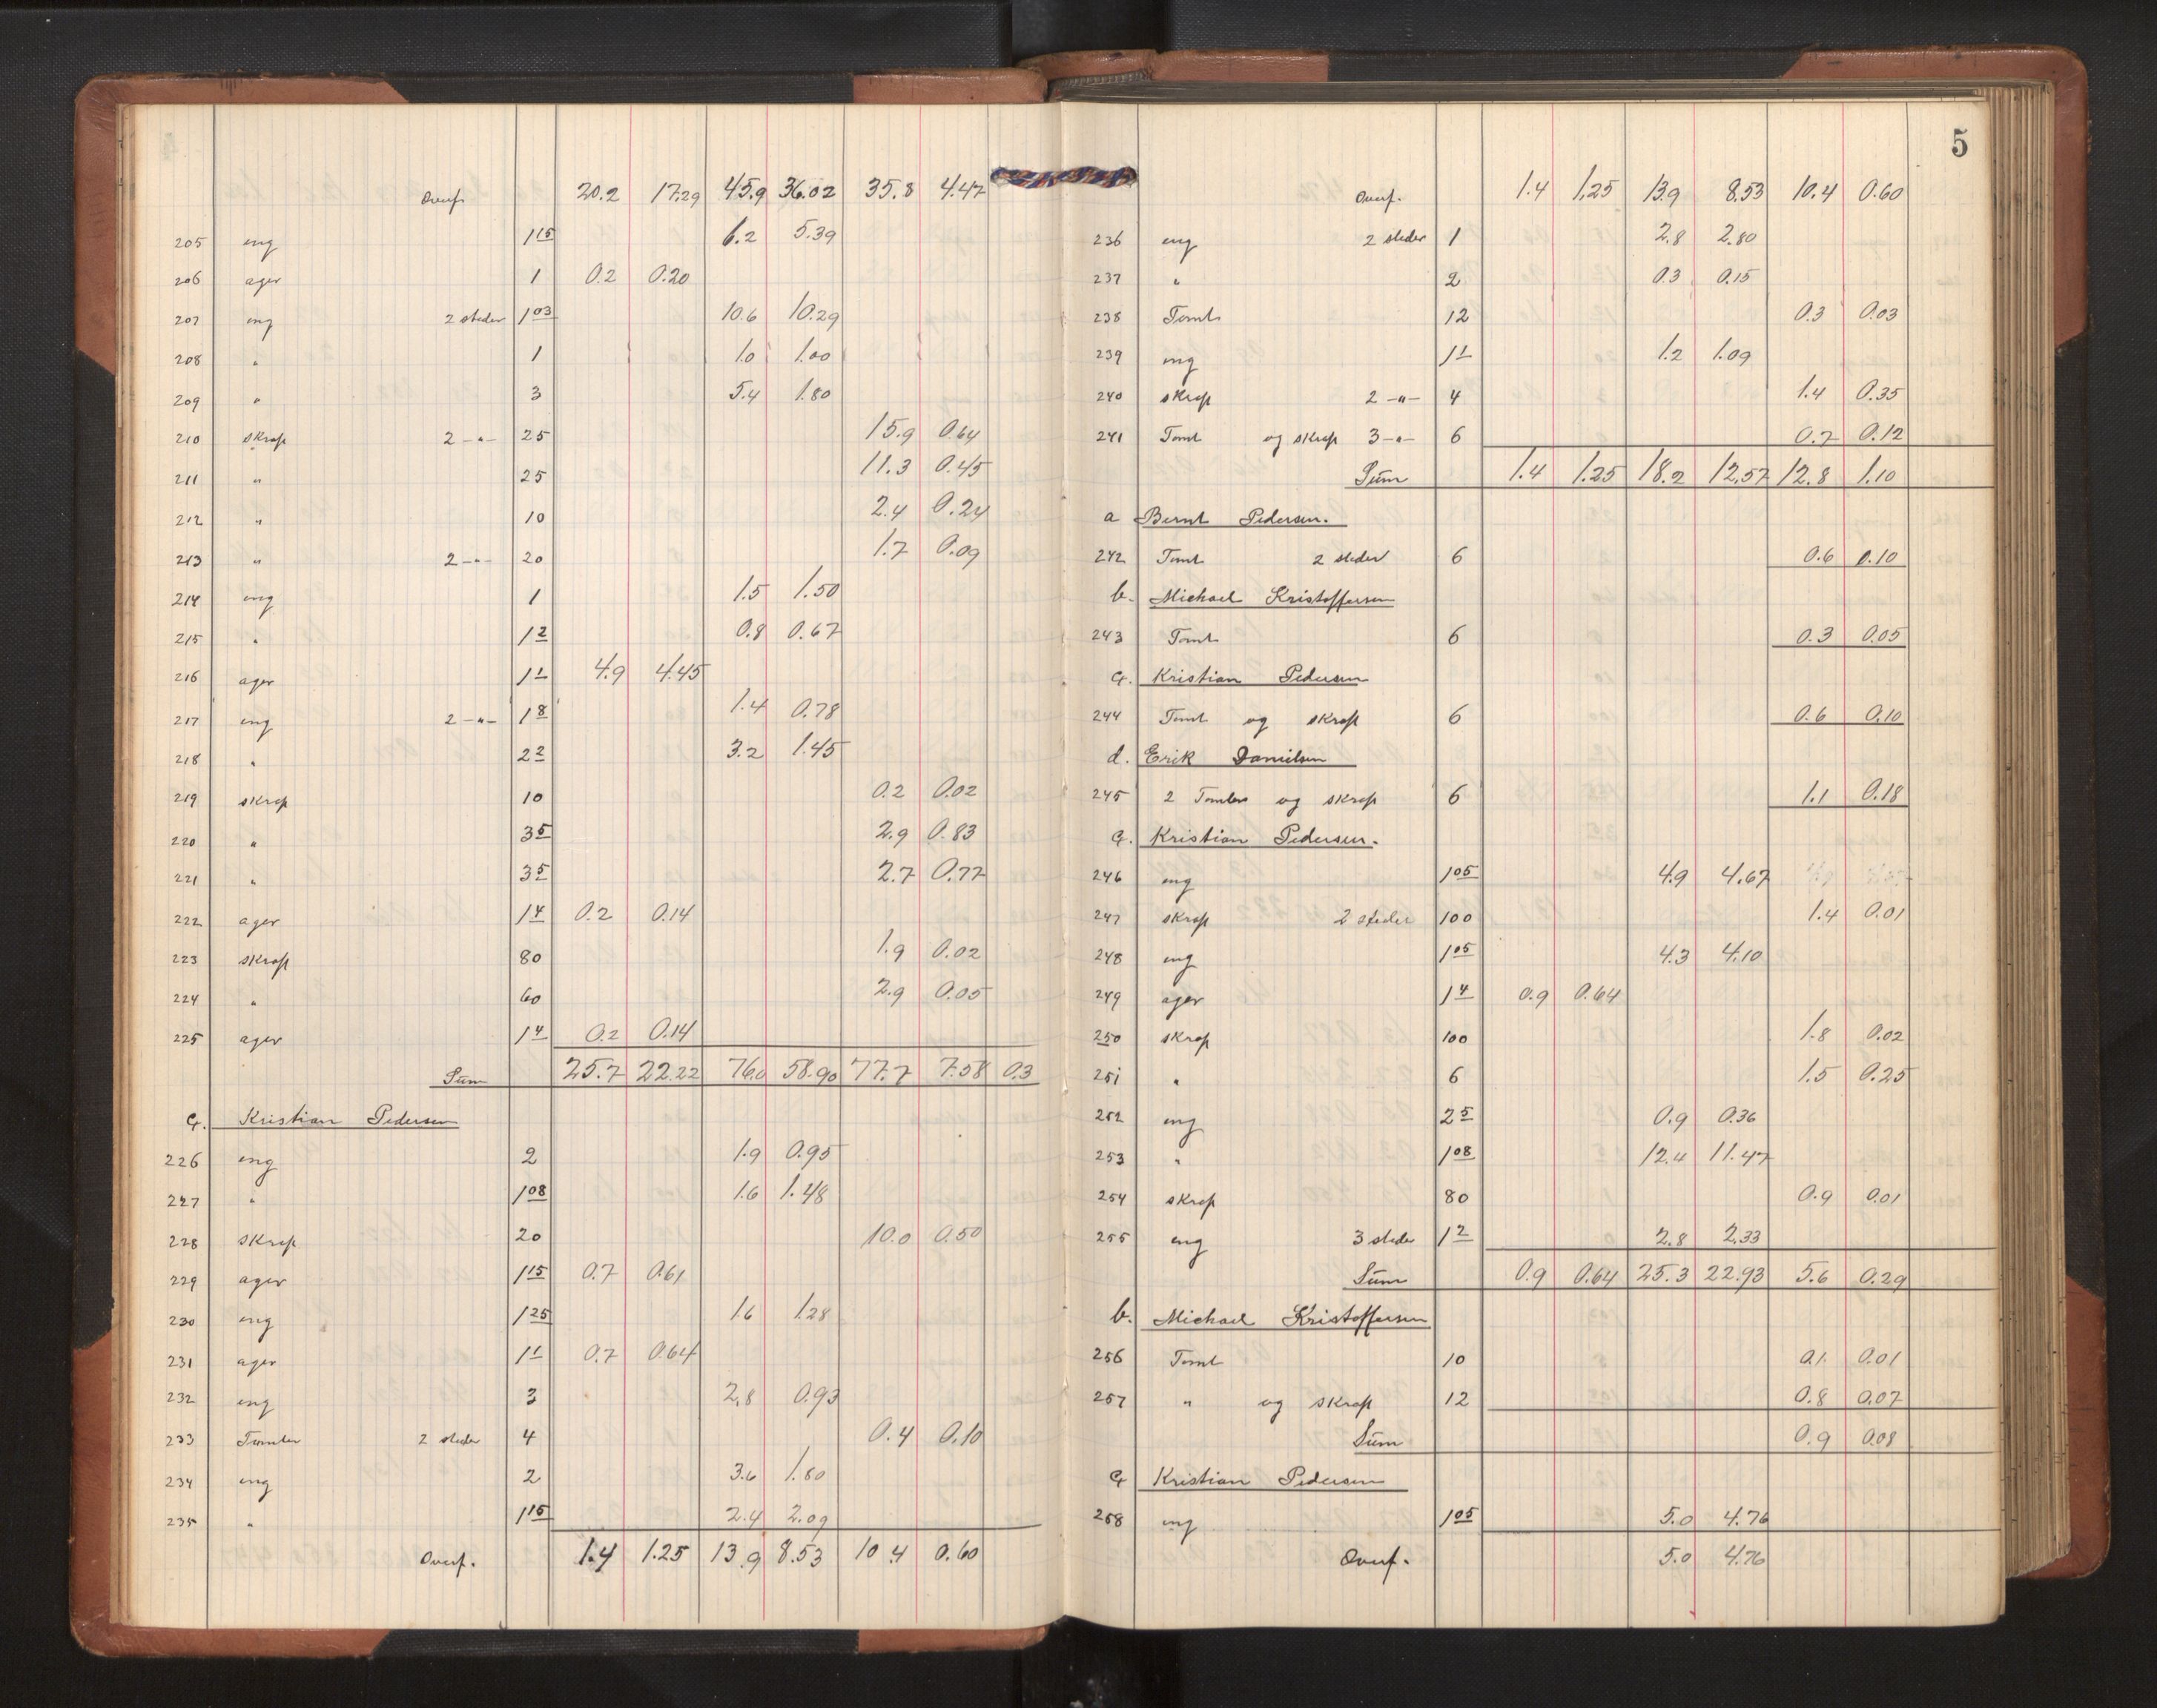 Overf. 20.2 17.29 45.9 36.02 35.8 4.47
205 eng 1 15 6.2 5.39
206 ager 1 0.2 0.20
207 eng 2 steder 1 03 10.6 10.29
208 " 1 1.0 1.00
209 " 3 5.4 1.80
210 skrap 2 -"- 25 15.9 0.64
211 " 25 11.3 0.45
212 " 10 2.4 0.24
213 " 2 -"- 20 1.7 0.09
214 eng 1 1.5 1.50
215 " 1 2 0.8 0.67
216 ager 1 1 4.9 4.45
217 eng 2 -"- 1 8 1.4 0.78
218 " 2 2 3.2 1.45
219 skrap 10 0.2 0.02
220 " 3 5 2.9 0.83
221 " 3 5 2.7 0.77
222 ager 1 4 0.2 0.14
223 skrap 80 1.9 0.02
224 " 60 2.9 0.05
225 ager 1 4 0.2 0.14
Sum 25.7 22.22 76.0 58.90 77.7 7.58 0.3
c. Kristian Pedersen
226 eng 2 1.9 0.95
227 " 1 08 1.6 1.48
228 skrap 20 10.0 0.50
229 ager 1 15 0.7 0.61
230 eng 1 25 1.6 1.28
231 ager 1 1 0.7 0.64
232 eng 3 2.8 0.93
233 Tomter 2 steder 4 0.4 0.10
234 eng 2 3.6 1.80
235 " 1 15 2.4 2.09
Overf. 1.4 1.25 13.9 8.53 10.4 0.60
5
Overf. 1.4 1.25 13.9 8.53 10.4 0.60
236 eng 2 steder 1 2.8 2.80
237 " 2 0.3 0.15
238 Tomt 12 0.3 0.03
239 eng 1 1 1.2 1.09
240 skrap 2 -"- 4 1.4 0.35
241 Tomt og skrap 3 -"- 6 0.7 0.12
Sum 1.4 1.25 18.2 12.57 12.8 1.10
a Bernt Pedersen.
242 Tomt 2 steder 6 0.6 0.10
b. Michael Kristoffersen
243 Tomt 6 0.3 0.05
c. Kristian Pedersen
244 Tomt og skrap 6 0.6 0.10
d. Erik Danielsen
245 2 Tomter og skrap 6 1.1 0.18
c. Kristian Pedersen.
246 eng 1 05 4.9 4.67
247 skrap 2 steder 100 1.4 0.01
248 eng 1 05 4.3 4.10
249 ager 1 4 0.9 0.64
250 skrap 100 1.8 0.02
251 " 6 1.5 0.25
252 eng 2 5 0.9 0.36
253 " 1 08 12.4 11.47
254 skrap 80 0.9 0.01
255 eng 3 steder 1 2 2.8 2.33
Sum 0.9 0.64 25.3 22.93 5.6 0.29
b. Michael Kristoffersen
256 Tomt 10 0.1 0.01
257 " og skrap 12 0.8 0.07
Sum 0.9 0.08
c Kristian Pedersen
258 eng 1 05 5.0 4.76
Overf. 5.0 4.76